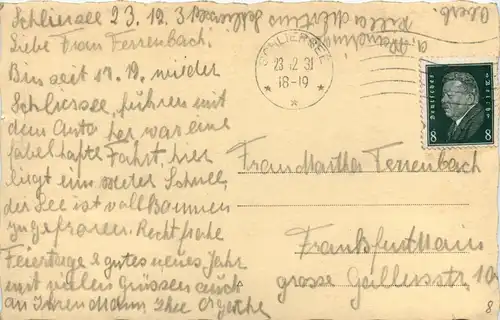 Schliersee 23.12.31
Liebe Frau Ferrenbach.
Bin seit 19. wieder
Schliersee, fuhren mit
dem Auto her war eine
fabelhafte Fahrt, hier
liegt ein meter Schnee,
der See ist voll
zugefroren. Recht frohe
Feiertage & gutes neues Jahr
mit vielen Grüssen auch
an Ihren Mann, Ihre
SCHLIERSEE
23.12.31
18-19
Deutsches Reich
8 8
Frau Martha Ferrenbach
Frankfurt Main
grosse Gallusstr. 10
8